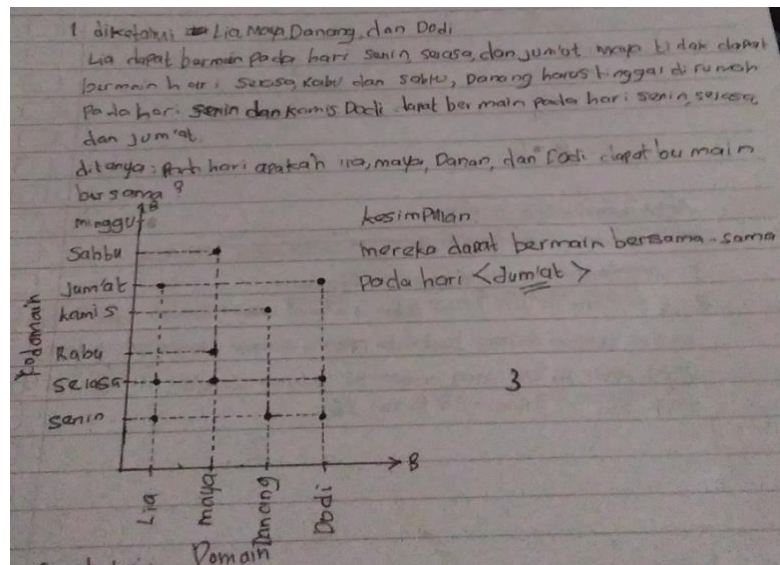 1 diketahui Lia, Maya, Danang, dan Dodi
Lia dapat bermain pada hari senin, selasa, dan jum'at maya tidak dapat
bermain hari selasa, Rabu dan sabtu, Danang harus tinggal di rumah
Pada hari senin dan kamis Dodi dapat bermain pada hari senin, selasa,
dan jum'at.
ditanya: hari apakah lia, maya, Danan, dan Dodi dapat bermain
bersama?
B
minggu
Sabbu
Jum'at
kamis
Rabu
selasa
senin
kodomain
kesimpulan
mereka dapat bermain bersama-sama
pada hari <Jum'at>
3
B
Lia
maya
Danang
Dodi
Domain